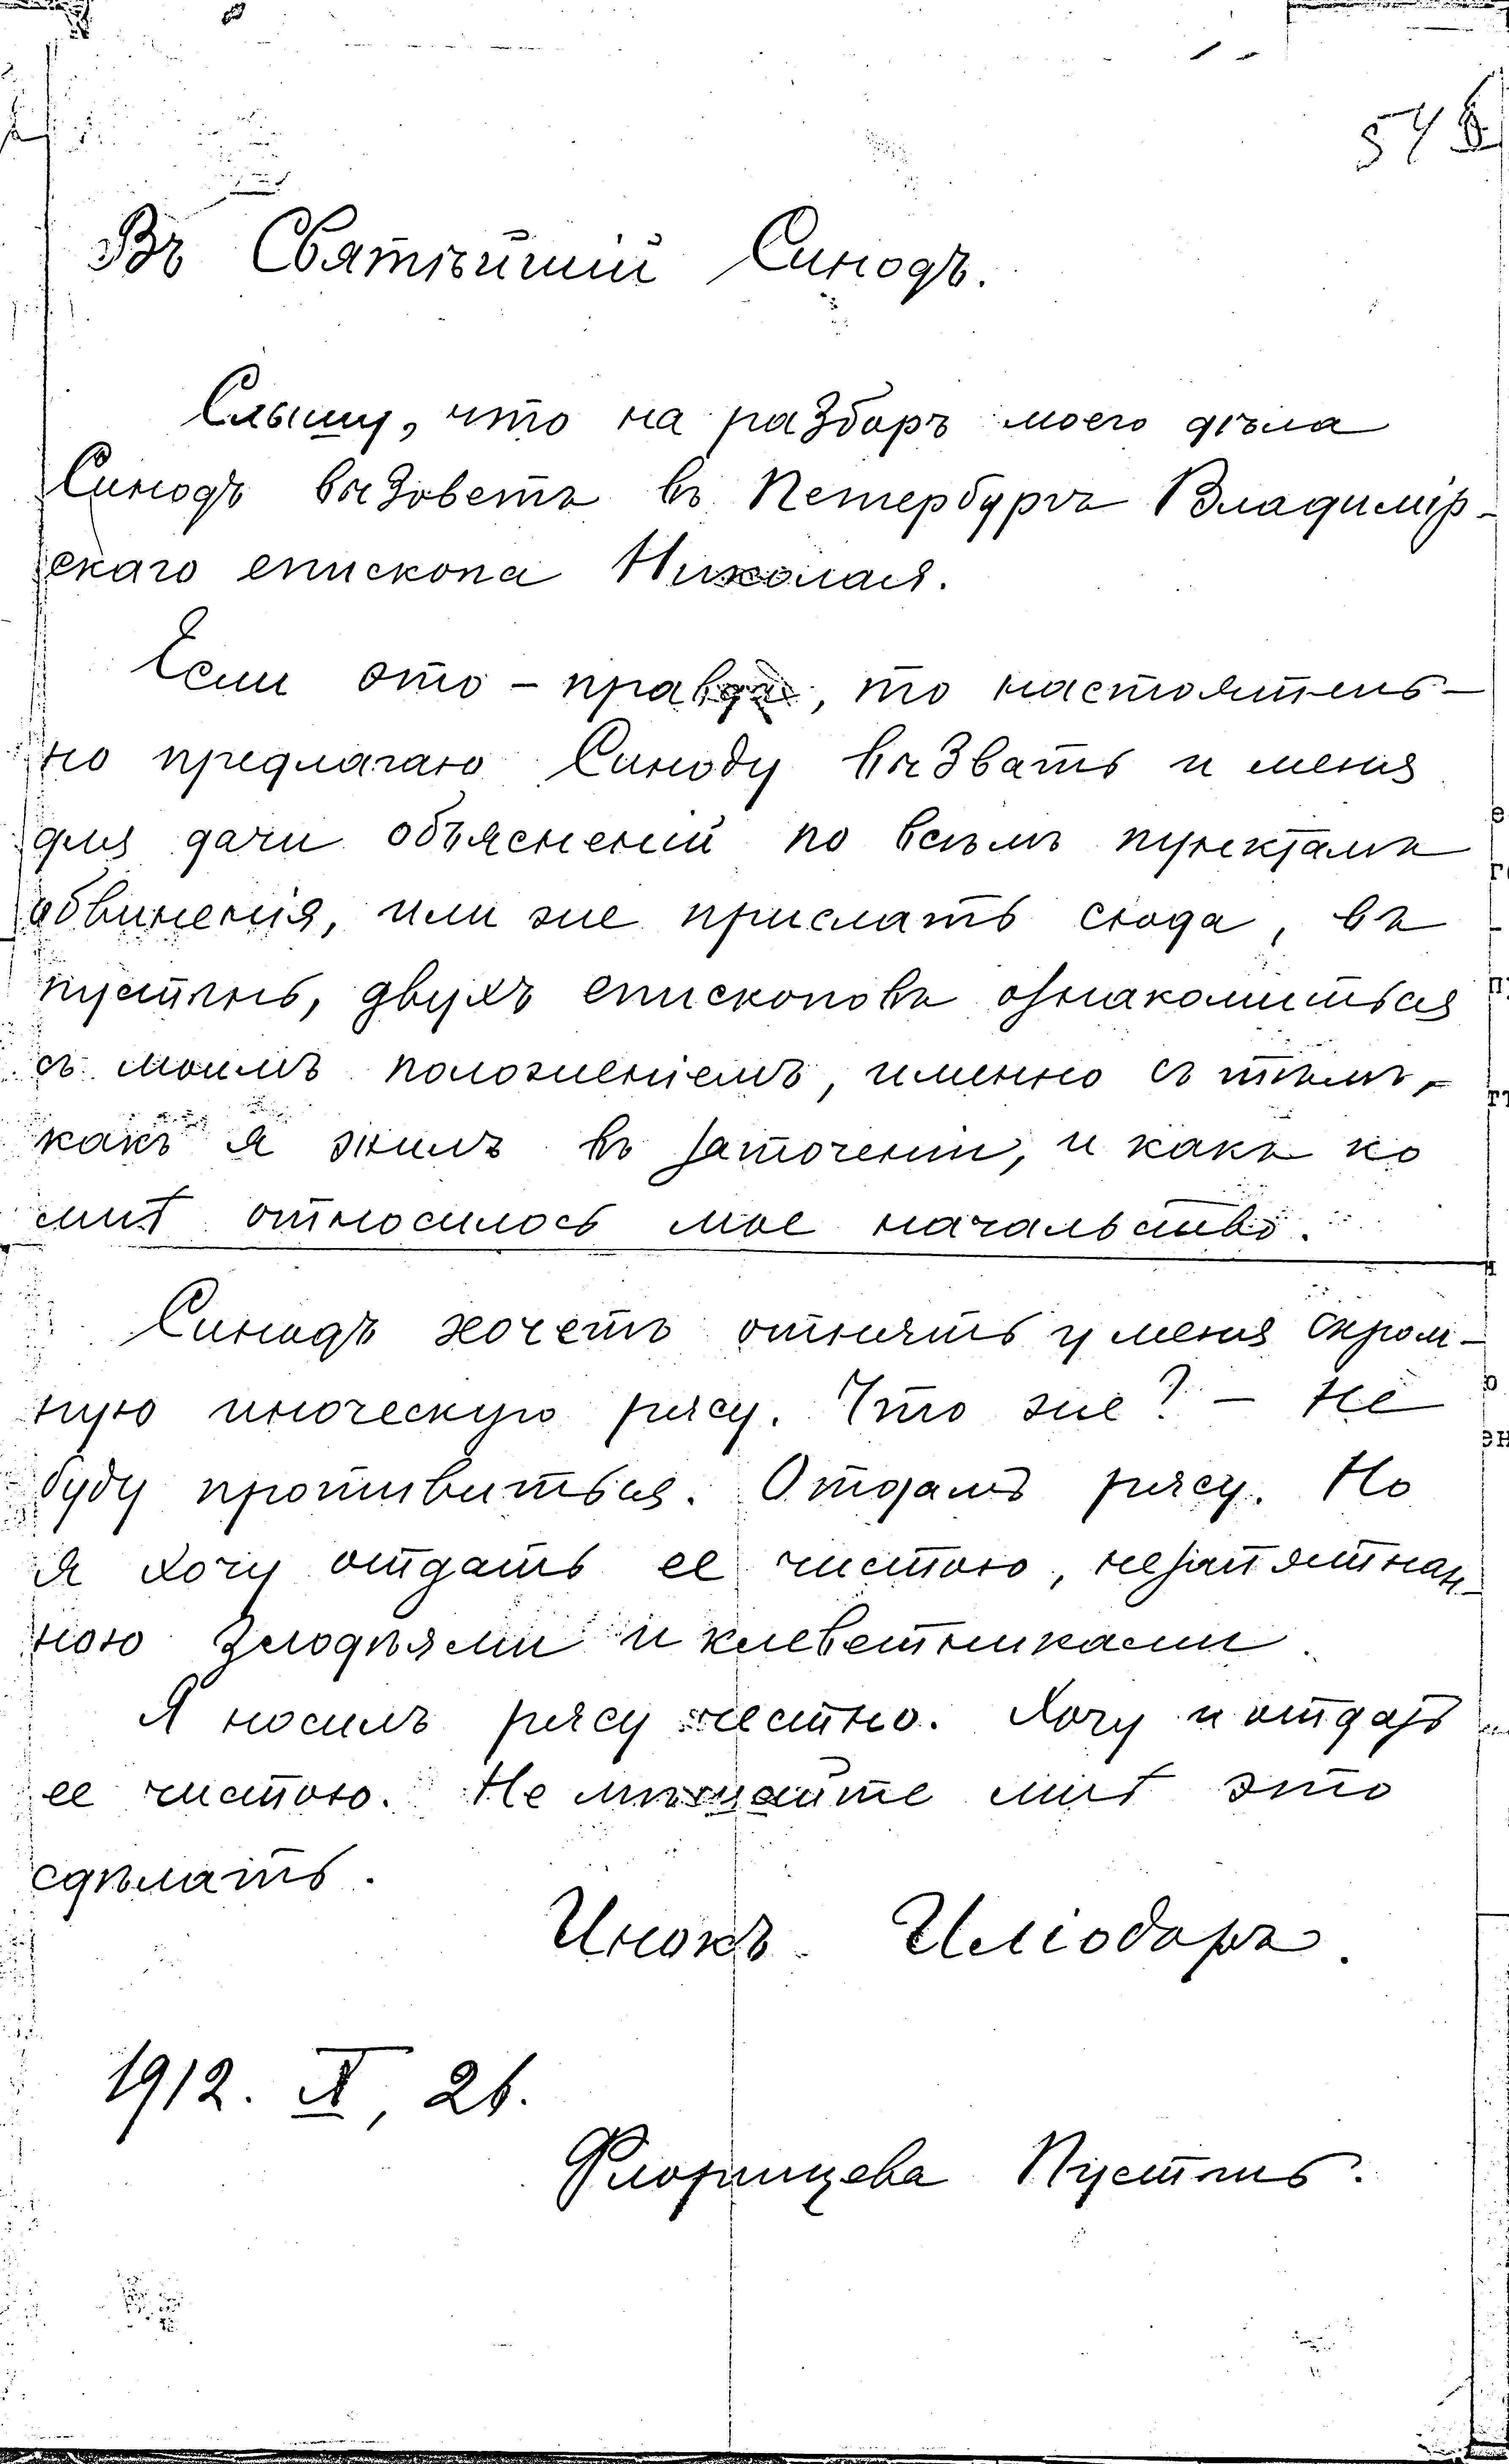 Въ Святѣйшій Синодъ.
Слышу, что на разборъ моего дѣла
Синодъ вызоветъ въ Петербургъ Владимір-
скаго епископа Николая.
Если это – правда, то настоятель-
но предлагаю Синоду вызвать и меня
для дачи объясненій по всѣмъ пунктамъ
обвиненія, или же прислать сюда, въ
пустынь, двухъ епископовъ ознакомиться
съ моимъ положеніемъ, именно съ тѣмъ,
какъ я жилъ въ заточеніи, и какъ ко
мнѣ относилось мое начальство.
Синодъ хочетъ отнять у меня скром-
ную иноческую рясу. Что же? – Не
буду противиться. Отдамъ рясу. Но
я хочу отдать ее чистою, незапятнан-
ною злодѣями и клеветниками.
Я носилъ рясу честно. Хочу и отдать
ее чистою. Не мѣшайте мнѣ это
сдѣлать.
Инокъ Иліодоръ.
1912. X, 26.
Флорищева Пустынь.